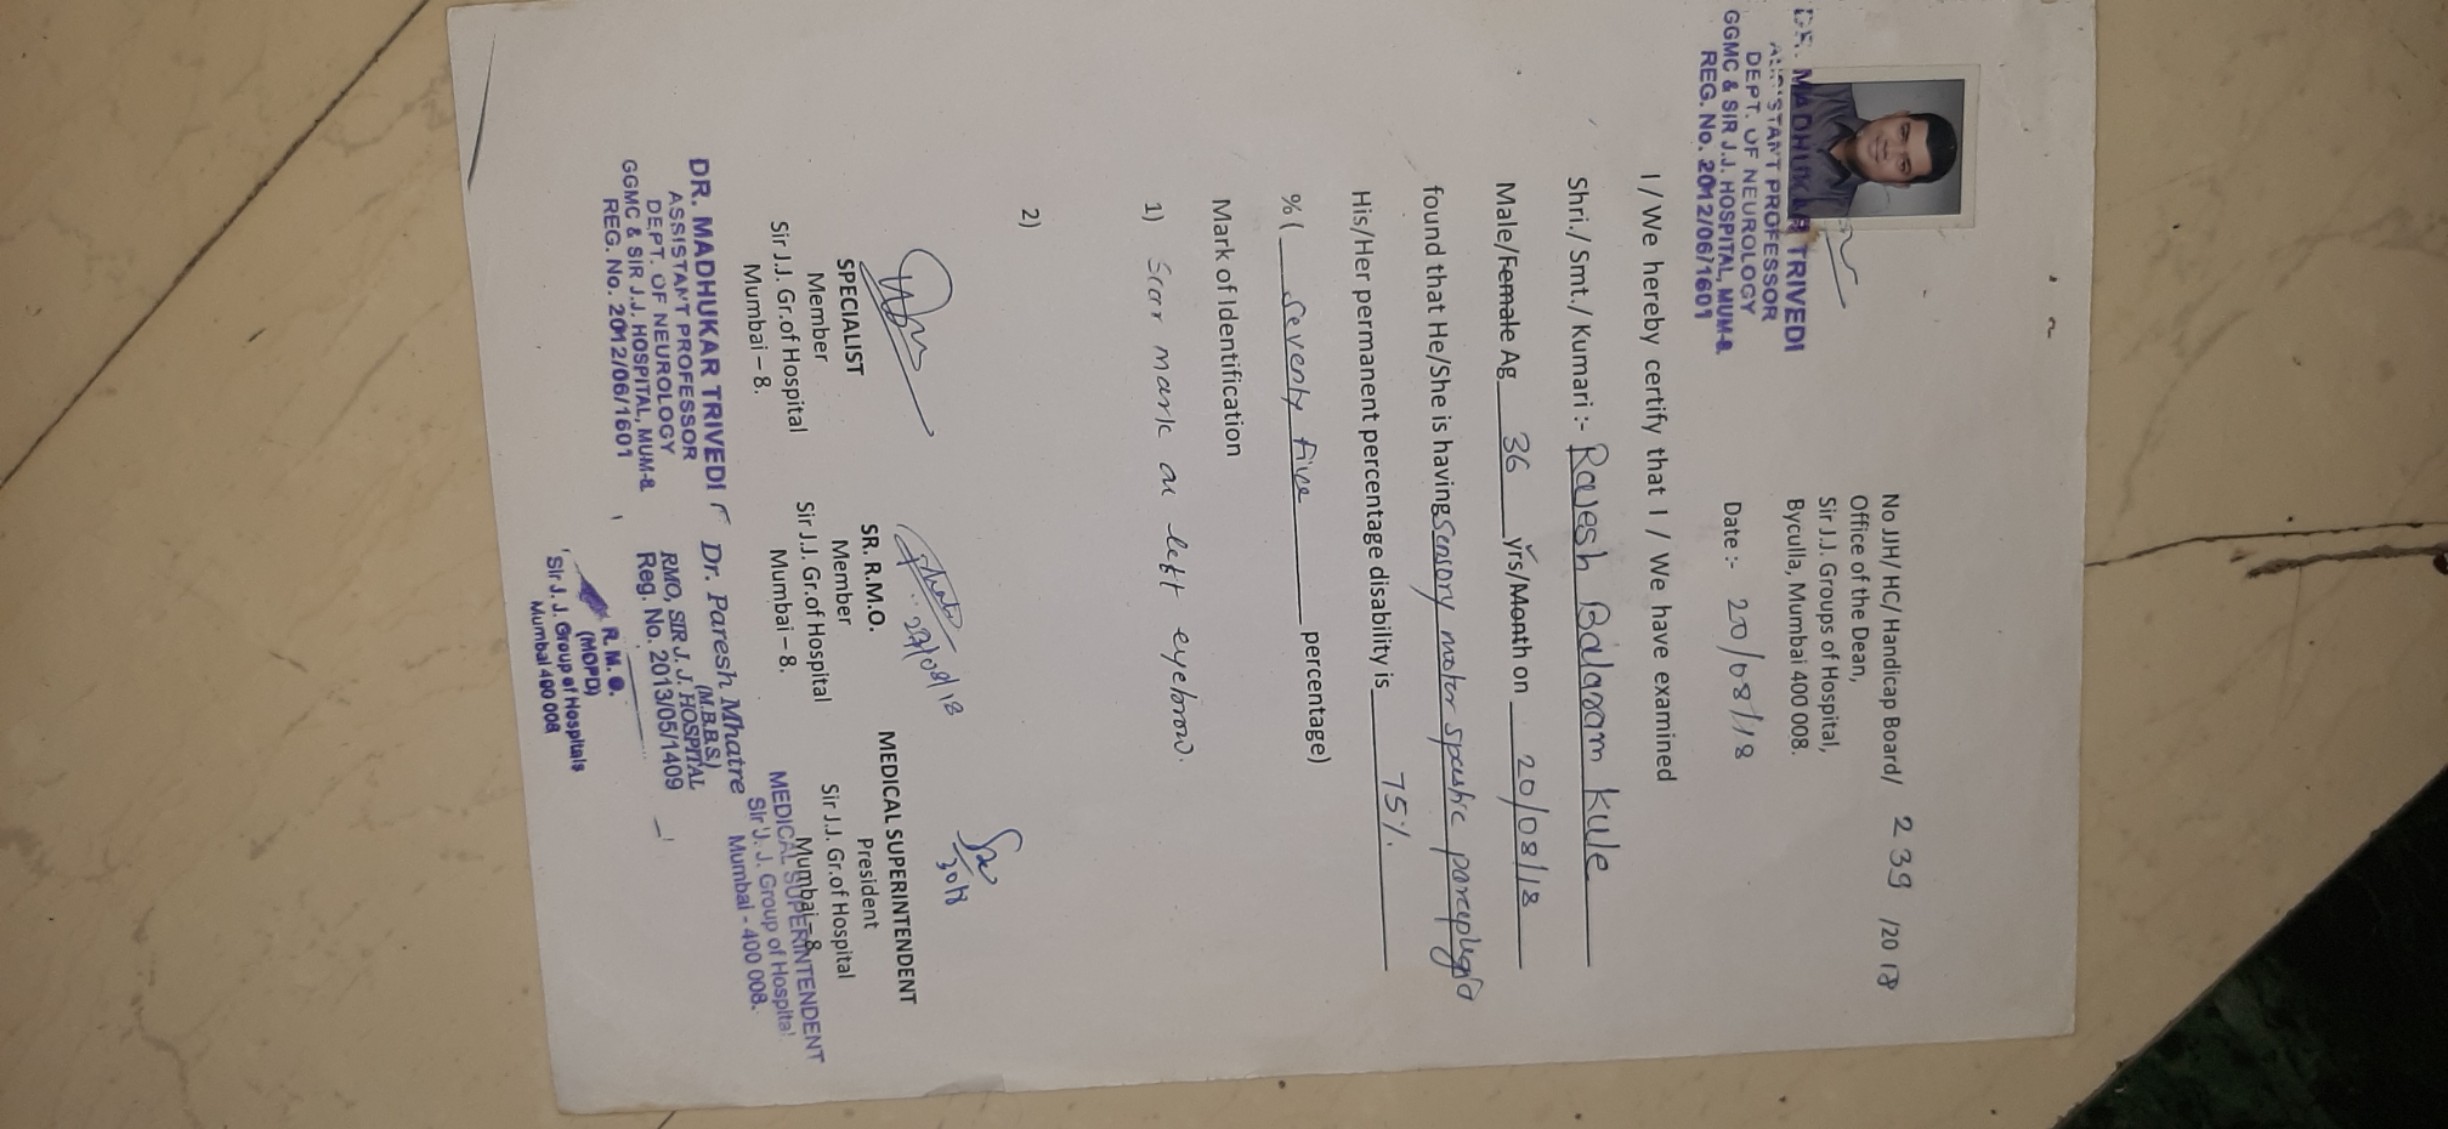 DR. MADHUKAR TRIVEDI
ASSISTANT PROFESSOR
DEPT. OF NEUROLOGY
GGMC & SIR J.J. HOSPITAL, MUM-8.
REG. No. 2012/06/1601
No JJH/ HC/ Handicap Board/ 239 /2018
Office of the Dean,
Sir J.J. Groups of Hospital,
Byculla, Mumbai 400 008.
Date :- 20/08/18
I / We hereby certify that I / We have examined
Shri./ Smt./ Kumari :- Rajesh Balaram Kule
Male/Female Ag 36 yrs/Month on 20/08/18
found that He/She is having Sensory motor spastic paraplegia
His/Her permanent percentage disability is 75%.
% ( Seventy five percentage)
Mark of Identification
1) Scar mark on left eyebrow.
2)
27/08/18
SPECIALIST
Member
Sir J.J. Gr.of Hospital
Mumbai – 8.
SR. R.M.O.
Member
Sir J.J. Gr.of Hospital
Mumbai – 8.
MEDICAL SUPERINTENDENT
President
Sir J.J. Gr.of Hospital
Mumbai – 8
MEDICAL SUPERINTENDENT
Sir J. J. Group of Hospital
Mumbai - 400 008.
DR. MADHUKAR TRIVEDI
ASSISTANT PROFESSOR
DEPT. OF NEUROLOGY
GGMC & SIR J.J. HOSPITAL, MUM-8.
REG. No. 2012/06/1601
Dr. Paresh Mhatre
(M.B.B.S.)
RMO, SIR J. J. HOSPITAL
Reg. No. 2013/05/1409
R. M. O.
(MOPD)
Sir J. J. Group of Hospitals
Mumbai 400 008